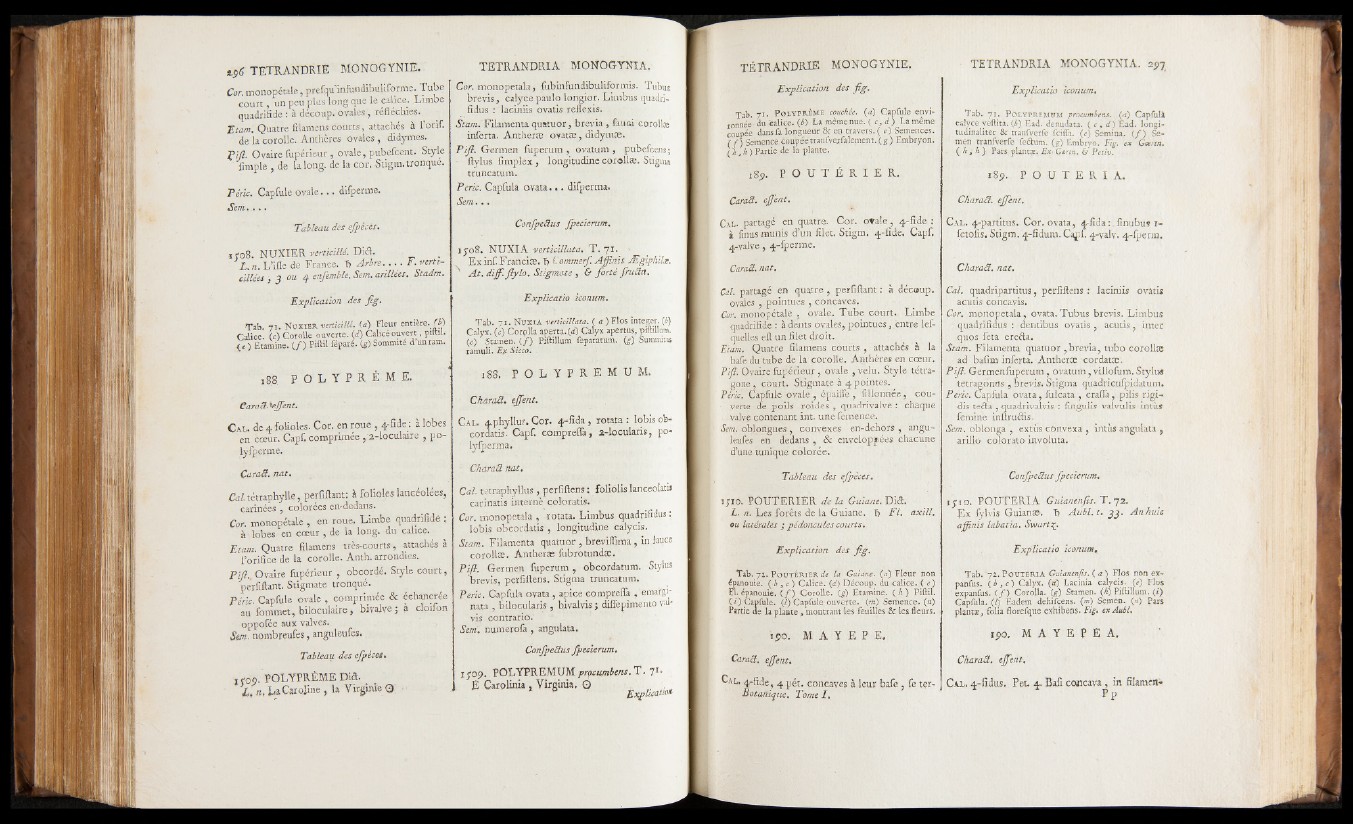 296 TETRANDRIE MONOGYNIE.
Cor. monopétale, presqu'infundibuliforme. Tube
court, un peu plus long que le calice. Limbe
quadrifide : à découp. ovales, réfléchies.
Etam. Quatre filamens courts, attachés à l'orif.
de la corolle. Anthères ovales, didymes.
Pist. Ovaire supérieur, ovale, pubescent. Style
simple, de la long. de la cor. Stigm. tronqué.
Péric. Capsule ovale... disperme.
Sem....
Tableau des espèces.
1508. NUXIER verticillé. Dict.
L. n. L'isle de France. ♄ Arbre.... F. verti-
cillées, 3 ou 4 ensemble. Sem. arillées. Stadm.
Explication des fig.
Tab. 71. NUXIER verticillé. (a) Fleur entière. (b)
Calice. (c) Corolle ouverte. (d) Calice ouvert, pistil.
(e) Etamine. (f) Pistil séparé. (g) Sommité d'un ram.
188 POLYPRÊME.
Caract. essent.
CAL. de 4 folioles. Cor. en roue, 4-fide : à lobes
en cœur. Caps. comprimée, 2-loculaire, po-
lysperme.
Caract. nat.
Cal. tétraphylle, persistant; à folioles lancéolées,
carinées, colorées en-dedans.
Cor. monopétale, en roue. Limbe quadrifide :
à lobes en cœur, de la long. du calice.
Etam. Quatre filamens très-courts, attachés à
l'orifice de la corolle. Anth. arrondies.
Pist. Ovaire supérieur, obcordé. Style court,
persistant. Stigmate tronqué.
Péric. Capsule ovale, comprimée & échancrée
au sommet, biloculaire, bivalve; à cloison
opposée aux valves.
Sem. nombreuses, anguleuses.
Tableau des espèces.
1509. POLYPRÊME Dict.
L. n. La Caroline, la Virginie ☉
TETRANDRIA MONOGYNIA.
Cor. monopetala, subinfundibuliformis. Tubus
brevis, calyce paulo longior. Limbus quadri-
fidus : laciniis ovatis reflexis.
Stam. Filamenta quatuor, brevia, fauci corollæ
inserta. Antheræ ovatæ, didymæ.
Pist. Germen superum, ovatum, pubescens;
stylus simplex, longitudine corollæ. Stigma
truncatum.
Peric. Capsula ovata... disperma.
Sem...
Conspectus specierum.
1508. NUXIA verticillata. T. 71.
Ex ins. Franciæ. ♄ Commers. Affinis Ægiphilæ.
At. diff. stylo. Stigmate, & forté fructu.
Explicatio iconum.
Tab. 71. NUXIA verticillata. (a) Flos integer. (b)
Calyx. (c) Corolla aperta. (d) Calyx apertus, pistillum.
(e) Stamen. (f) Pistillum separatum. (g) Summitas
ramuli. Ex Sicco.
188. POLYPREMUM.
Charact. essent.
CAL. 4-phyllus. Cor. 4-fida, rotata : lobis ob-
cordatis. Caps. compressa, 2-locularis, po-
lysperma.
Charact nat.
Cal. tetraphyllus, persistens : foliolis lanceolatis
carinatis internè coloratis.
Cor. monopetala, rotata. Limbus quadrifidus :
lobis obcordatis, longitudine calycis.
Stam. Filamenta quatuor, brevissima, in fauce
corollæ. Antheræ subrotundæ.
Pist. Germen superum, obcordatum. Stylus
brevis, persistens. Stigma truncatum.
Peric. Capsula ovata, apice compressa, emargi-
nata, bilocularis, bivalvis; dissepimento val-
vis contrario.
Sem. numerosa, angulata.
Conspectus specierum.
1509. POLYPREMUM procumbens. T. 71.
E Carolinia, Virginia. ☉
Explication
TÉTRANDRIE MONOGYNIE.
Explication des fig.
Tab. 71. POLYPRÊME couchée. (a) Capsule envi-
ronnée du calice. (b) La même nue. (c, d) La même
coupée dans sa longueur & en travers. (e) Semences.
(f) Semence coupée transversalement. (g) Embryon.
(h, h) Partie de la plante.
189. POUTÉRIER.
Caract. essent.
CAL. partagé en quatre. Cor. ovale, 4-fide :
à sinus munis d'un filet. Stigm. 4-fide. Caps.
4-valve, 4-sperme.
Caract. nat.
Cal. partagé en quatre, persistant : à découp.
ovales, pointues, concaves.
Cor. monopétale, ovale. Tube court. Limbe
quadrifide : à dents ovales, pointues, entre les-
quelles est un filet droit.
Etam. Quatre filamens courts, attachés à la
base du tube de la corolle. Anthères en cœur.
Pist. Ovaire supérieur, ovale, velu. Style tétra-
gone, court. Stigmate à 4 pointes.
Péric. Capsule ovale, épaisse, sillonnée, cou-
verte de poils roides, quadrivalve : chaque
valve contenant int. une semence.
Sem. oblongues, convexes en-dehors, angu-
leuses en dedans, & enveloppées chacune
d'une tunique colorée.
Tableau des espèces.
1510. POUTERIER de la Guiane. Dict.
L. n. Les forêts de la Guiane. ♄ Fl. axill.
ou latérales; pédoncules courts.
Explication des fig.
Tab. 72. POUTERIER de la Guiane. (a) Fleur non
épanouie. (b, c) Calice. (d) Découp. du calice. (e)
Fl. épanouie. (f) Corolle. (g) Etamine. (h) Pistil.
(i) Capsule. (l) Capsule ouverte. (m) Semence. (n)
Partie de la plante, montrant les feuilles & les fleurs.
190. MAYEPE.
Caract. essent.
CAL. 4-fide, 4 pét. concaves à leur base, se ter-
Botanique. Tome I.
TETRANDRIA MONOGYNIA. 297
Explicatio iconum.
Tab. 71. POLYPREMUM procumbens. (a) Capsula
calyce vestita. (b) Ead. denudata. (c, d) Ead. longi-
tudinaliter & transverse scissa. (e) Semina. (f) Se-
men transverse sectum. (g) Embryo. Fig. ex Gærtn.
(h, h). Pars plantæ. Ex Gærtn. & Petiv.
189. POUTERIA.
Charact. essent.
CAL. 4-partitus. Cor. ovata, 4-fida : sinubus 1-
setosis. Stigm. 4-fidum. Caps. 4-valv. 4-sperm.
Charact. nat.
Cal. quadripartitus, persistens : laciniis ovatis
acutis concavis.
Cor. monopetala, ovata. Tubus brevis. Limbus
quadrifidus : dentibus ovatis, acutis, inter
quos seta erecta.
Stam. Filamenta quatuor, brevia, tubo corollæ
ad basim inserta. Antheræ cordatæ.
Pist. Germen superum, ovatum, villosum. Stylus
tetragonus, brevis. Stigma quadricuspidatum.
Peric. Capsula ovata, sulcata, crassa, pilis rigi-
dis tecta, quadrivalvis : singulis valvulis intùs
semine instructis.
Sem. oblonga, extùs convexa, intùs angulata,
arillo colorato involuta.
Conspectus specierum.
1510. POUTERIA Guianensis. T. 72.
Ex sylvis Guianæ. ♄ Aubl. t. 33. An huic
affinis labatia. Swartz.
Explicatio iconum.
Tab. 72. POUTERIA Guianensis. (a) Flos non ex-
pansus. (b, c) Calyx. (d) Lacinia calycis. (e) Flos
expansus. (f) Corolla. (g) Stamen. (h) Pistillum. (i)
Capsula. (l) Eadem dehiscens. (m) Semen. (n) Pars
plantæ, folia floresque exhibens. Fig. ex Aubl.
190. MAYEPEA.
Charact. essent.
CAL. 4-fidus. Pet. 4. Basi concava, in filamen-
Pp